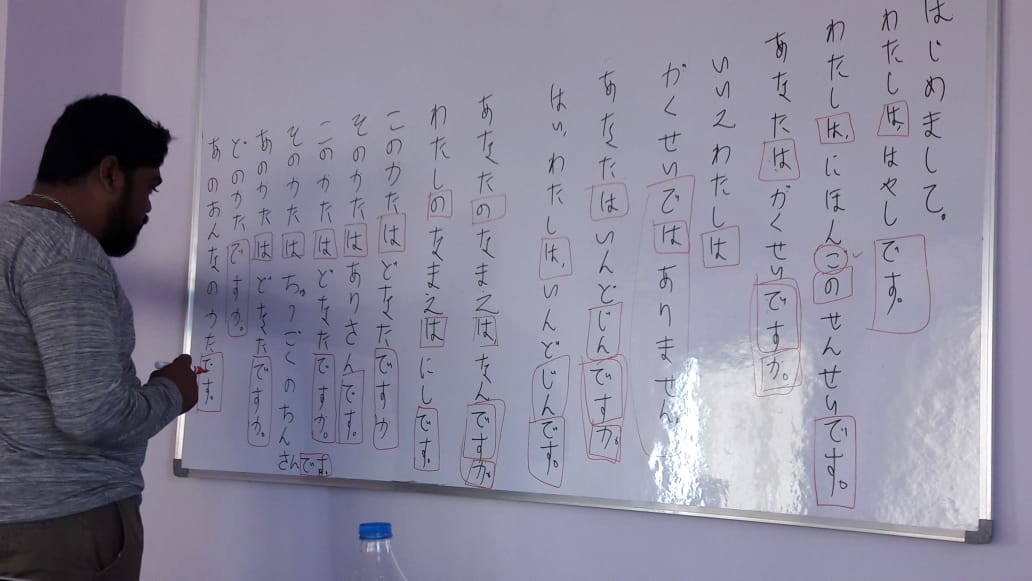 はじめまして。
わたしは、はやしです。
わたしは、にほんごのせんせいです。
あなたはがくせいですか。
いいえわたしは
がくせいではありません。
あなたはいんどじんですか。
はい、わたしは、いんどじんです。
あなたのなまえはなんですか。
わたしのなまえはにしです。
このかたはどなたですか
そのかたはありさんです。
このかたはどなたですか。
そのかたはちゅうごくのちんさんです。
あのかたはどなたですか。
どのかたですか。
あのおんなのかたです。